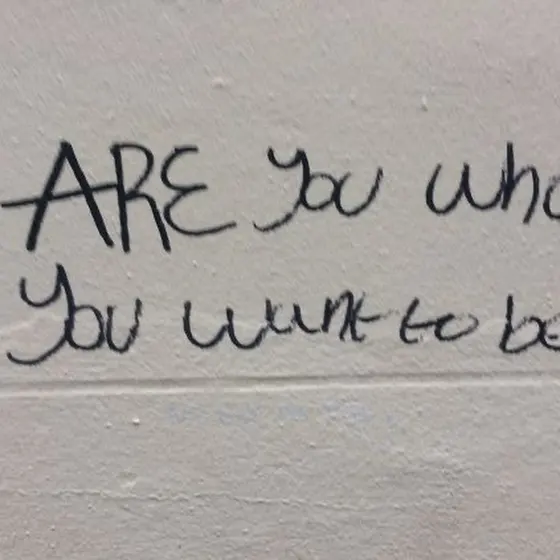 ARE you who
you want to be